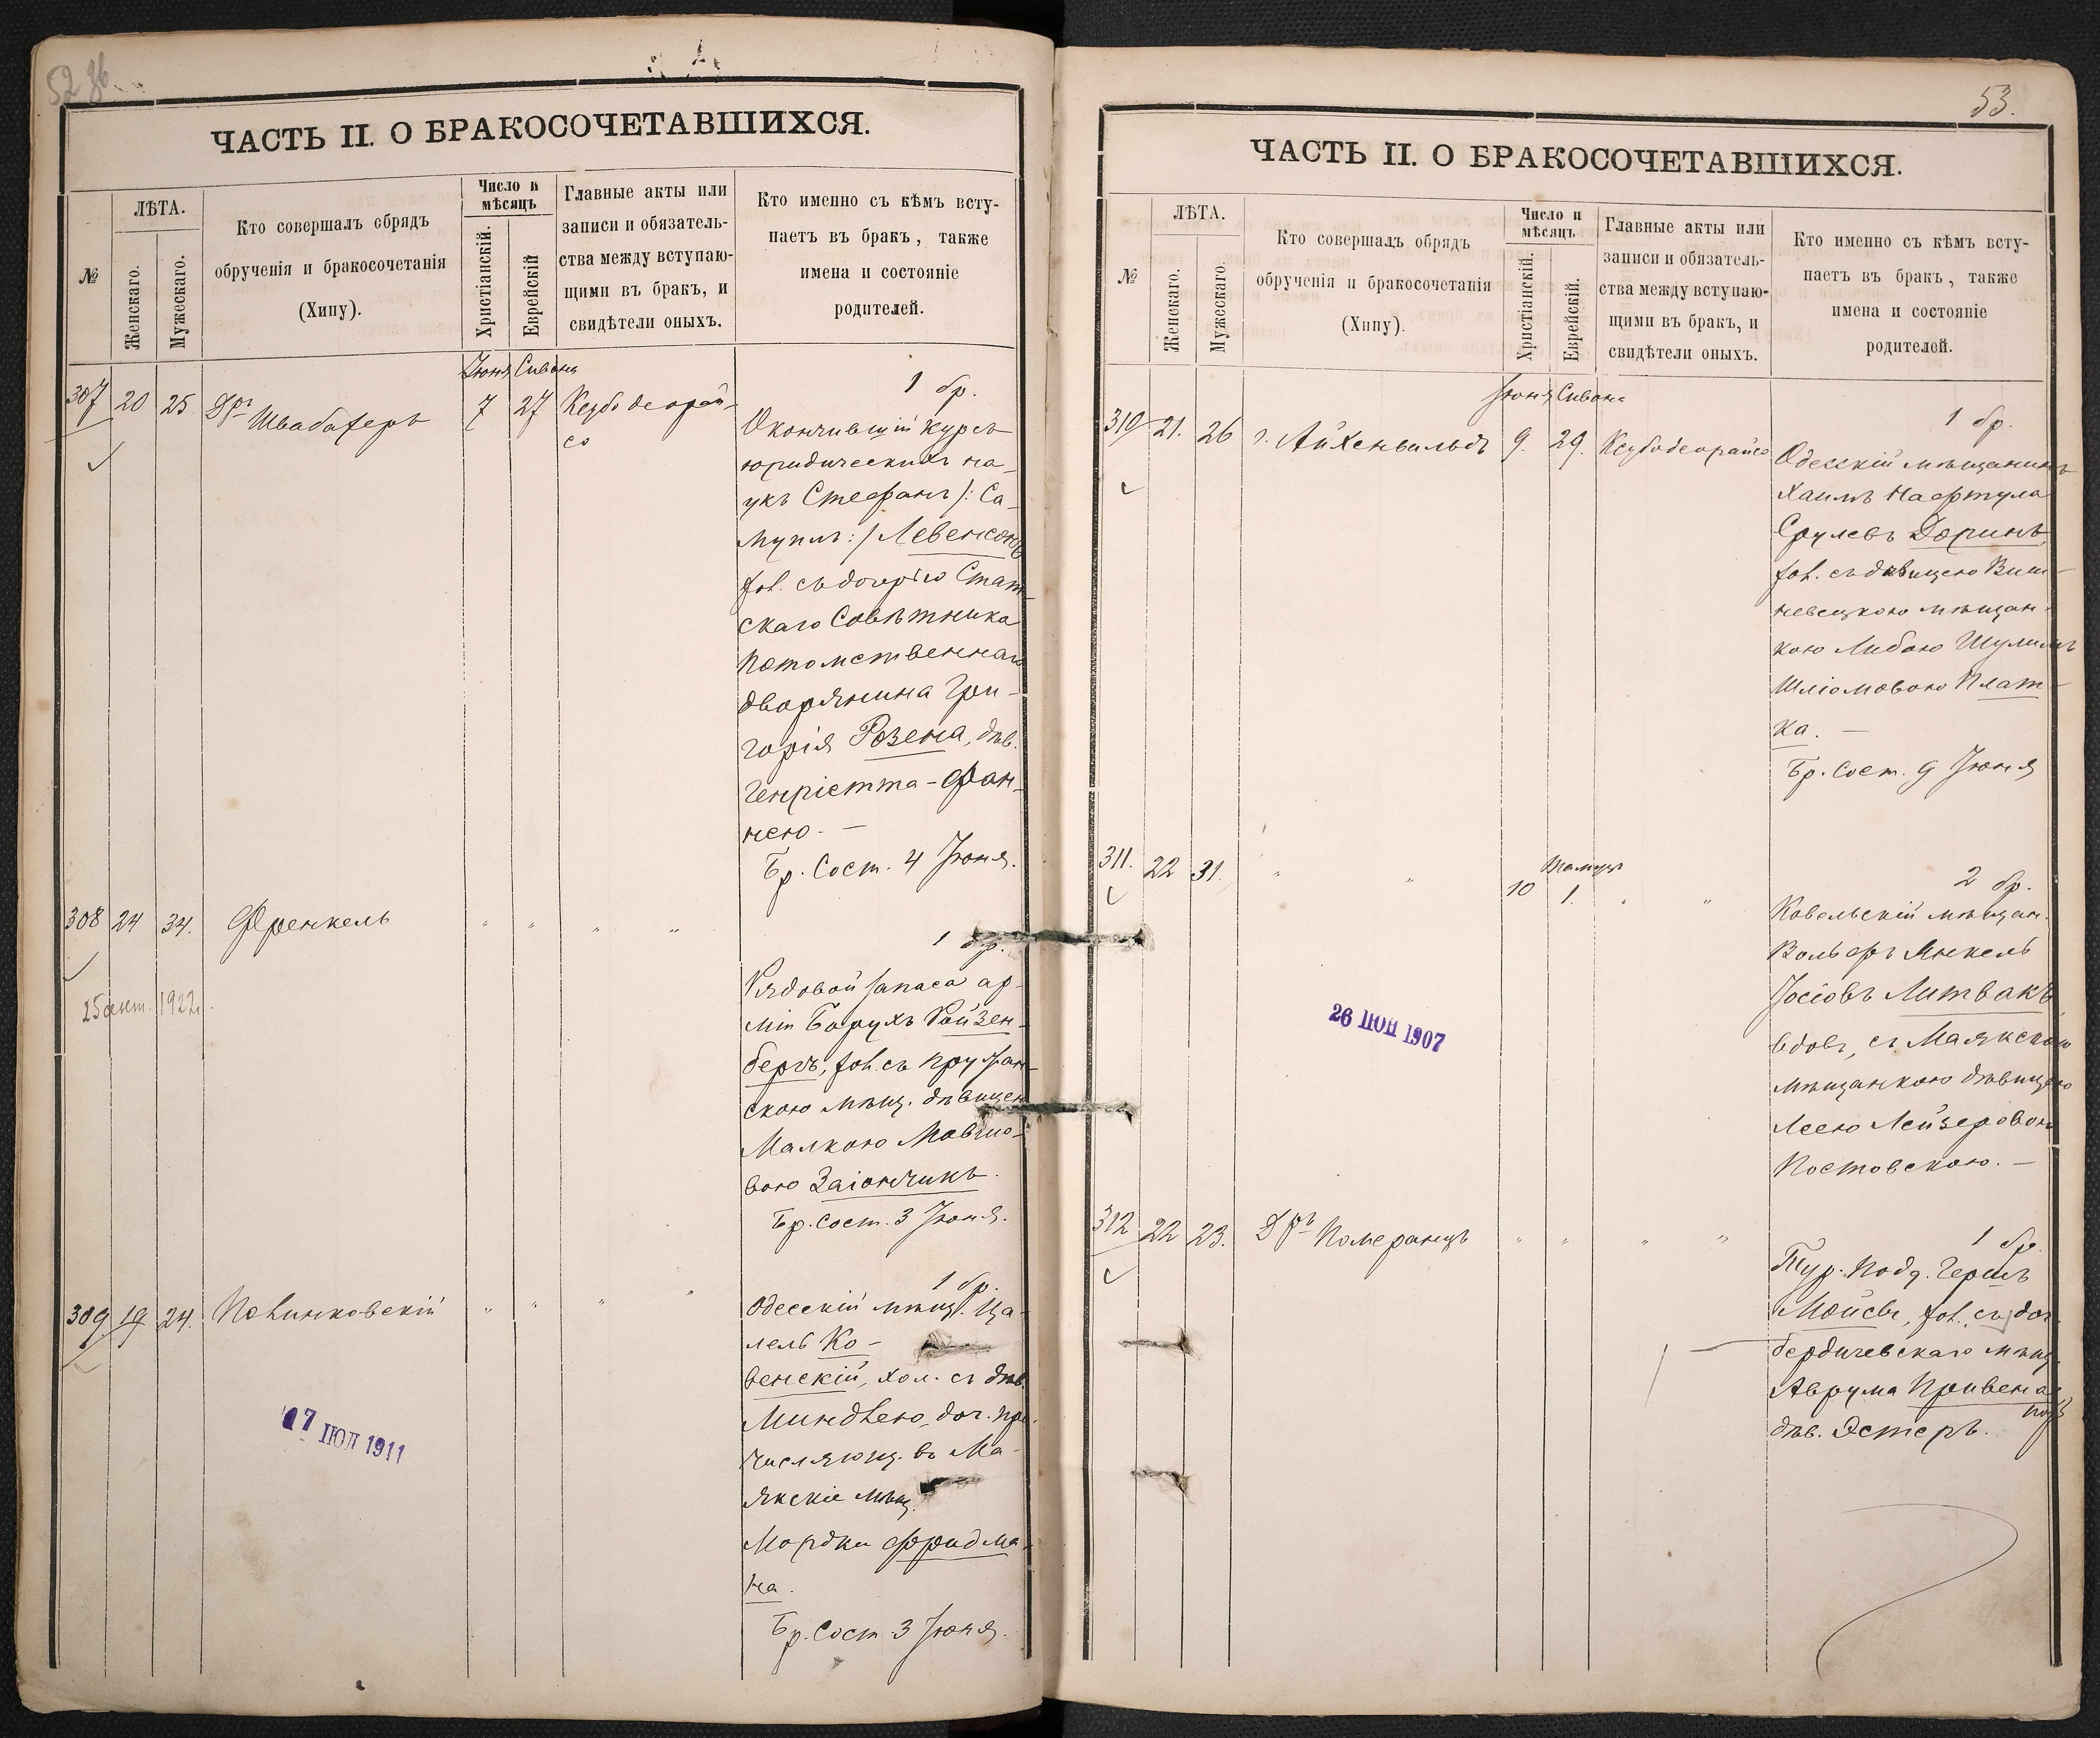 52 об.
ЧАСТЬ II. О БРАКОСОЧЕТАВШИХСЯ.
№
ЛѢТА.
Женскаго.
Мужескаго.
Кто совершалъ обрядъ
обрученія и бракосочетанія
(Хипу).
Число и
мѣсяцъ
Христіанскій.
Еврейскій
Главные акты или
записи и обязатель-
ства между вступаю-
щими въ бракъ, и
свидѣтели оныхъ.
Кто именно съ кѣмъ всту-
паетъ въ бракъ, также
имена и состояніе
родителей.
Іюня Сивона
307 20 25 Дръ Швабахеръ 7 27 Ксубо деорай-
со
1 бр.
Окончившій курсъ
юридическихъ на-
укъ Стефанъ /: Са-
муилъ :/ Левенсонъ
хол. съ дочерью Стат-
скаго Совѣтника
Потомственнаго
дворянина Гри-
горія Розена, дѣв.
Генріетта-Фан-
нею. —
Бр. Сост. 4 Іюня.
308 24 34. Френкель " " " "
25 сент. 1922 г.
1 бр.
Рядовой запаса ар-
міи Борухъ Ройзен-
бергъ, хол. съ Пружан-
скою мѣщ. дѣвицею
Малкою Мовшо-
вою Заіончикъ.
Бр. Сост. 3 Іюня.
309 19 24. Повинковскій " " " "
1 бр.
Одесскій мѣщ. Ца-
лель Ко-
венскій, хол. съ дѣв.
Миндлею, доч. при-
числяющ. въ Ма-
якскіе мѣщ.
Мордки Фридма-
на.
Бр. Сост. 3 Іюня.
17 ІЮЛ 1911
53.
ЧАСТЬ II. О БРАКОСОЧЕТАВШИХСЯ.
№
ЛѢТА.
Женскаго.
Мужескаго.
Кто совершалъ обрядъ
обрученія и бракосочетанія
(Хипу).
Число и
мѣсяцъ
Христіанскій.
Еврейскій.
Главные акты или
записи и обязатель-
ства между вступаю-
щими въ бракъ, и
свидѣтели оныхъ.
Кто именно съ кѣмъ всту-
паетъ въ бракъ, также
имена и состояніе
родителей.
Іюня Сивона
310 21. 26 г. Айхенвальдъ 9. 29. Ксубо деорайсо
1 бр.
Одесскій мѣщанинъ
Хаимъ Нафтула
Срулевъ Доринъ,
хол. съ дѣвицею Виш-
невецкою мѣщан-
кою Либою Шулимъ
Шліомовою Плат-
ка. —
Бр. Сост. 9 Іюня
Тамузъ
311. 22 31. " " 10 1. " "
2 бр.
Ковельскій мѣщан.
Вольфъ Янкель
Іосіовъ Литвакъ
вдовъ, съ Маякскою
мѣщанкою дѣвицею
Леею Лейзеровою
Постовскою. —
26 ІЮЛ 1907
312 22 23. Дръ Померанцъ " " " "
1 бр.
Тур. Подд. Гершъ
Мойсы, хол. съ доч.
бердичевскаго мѣщ.
Аврума Привена
дѣв. Эстеръ.